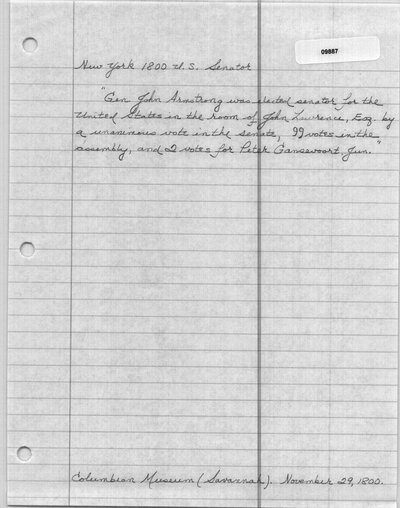 09887
New York 1800 U.S. Senator
"Gen John Armstrong was elected senator for the
United States in the room of John Lawrence, Esq. by
a unanimous vote in the senate, 99 votes in the
assembly, and 2 votes for Peter Gansevoort, Jun."
Columbian Museum (Savannah). November 29, 1800.